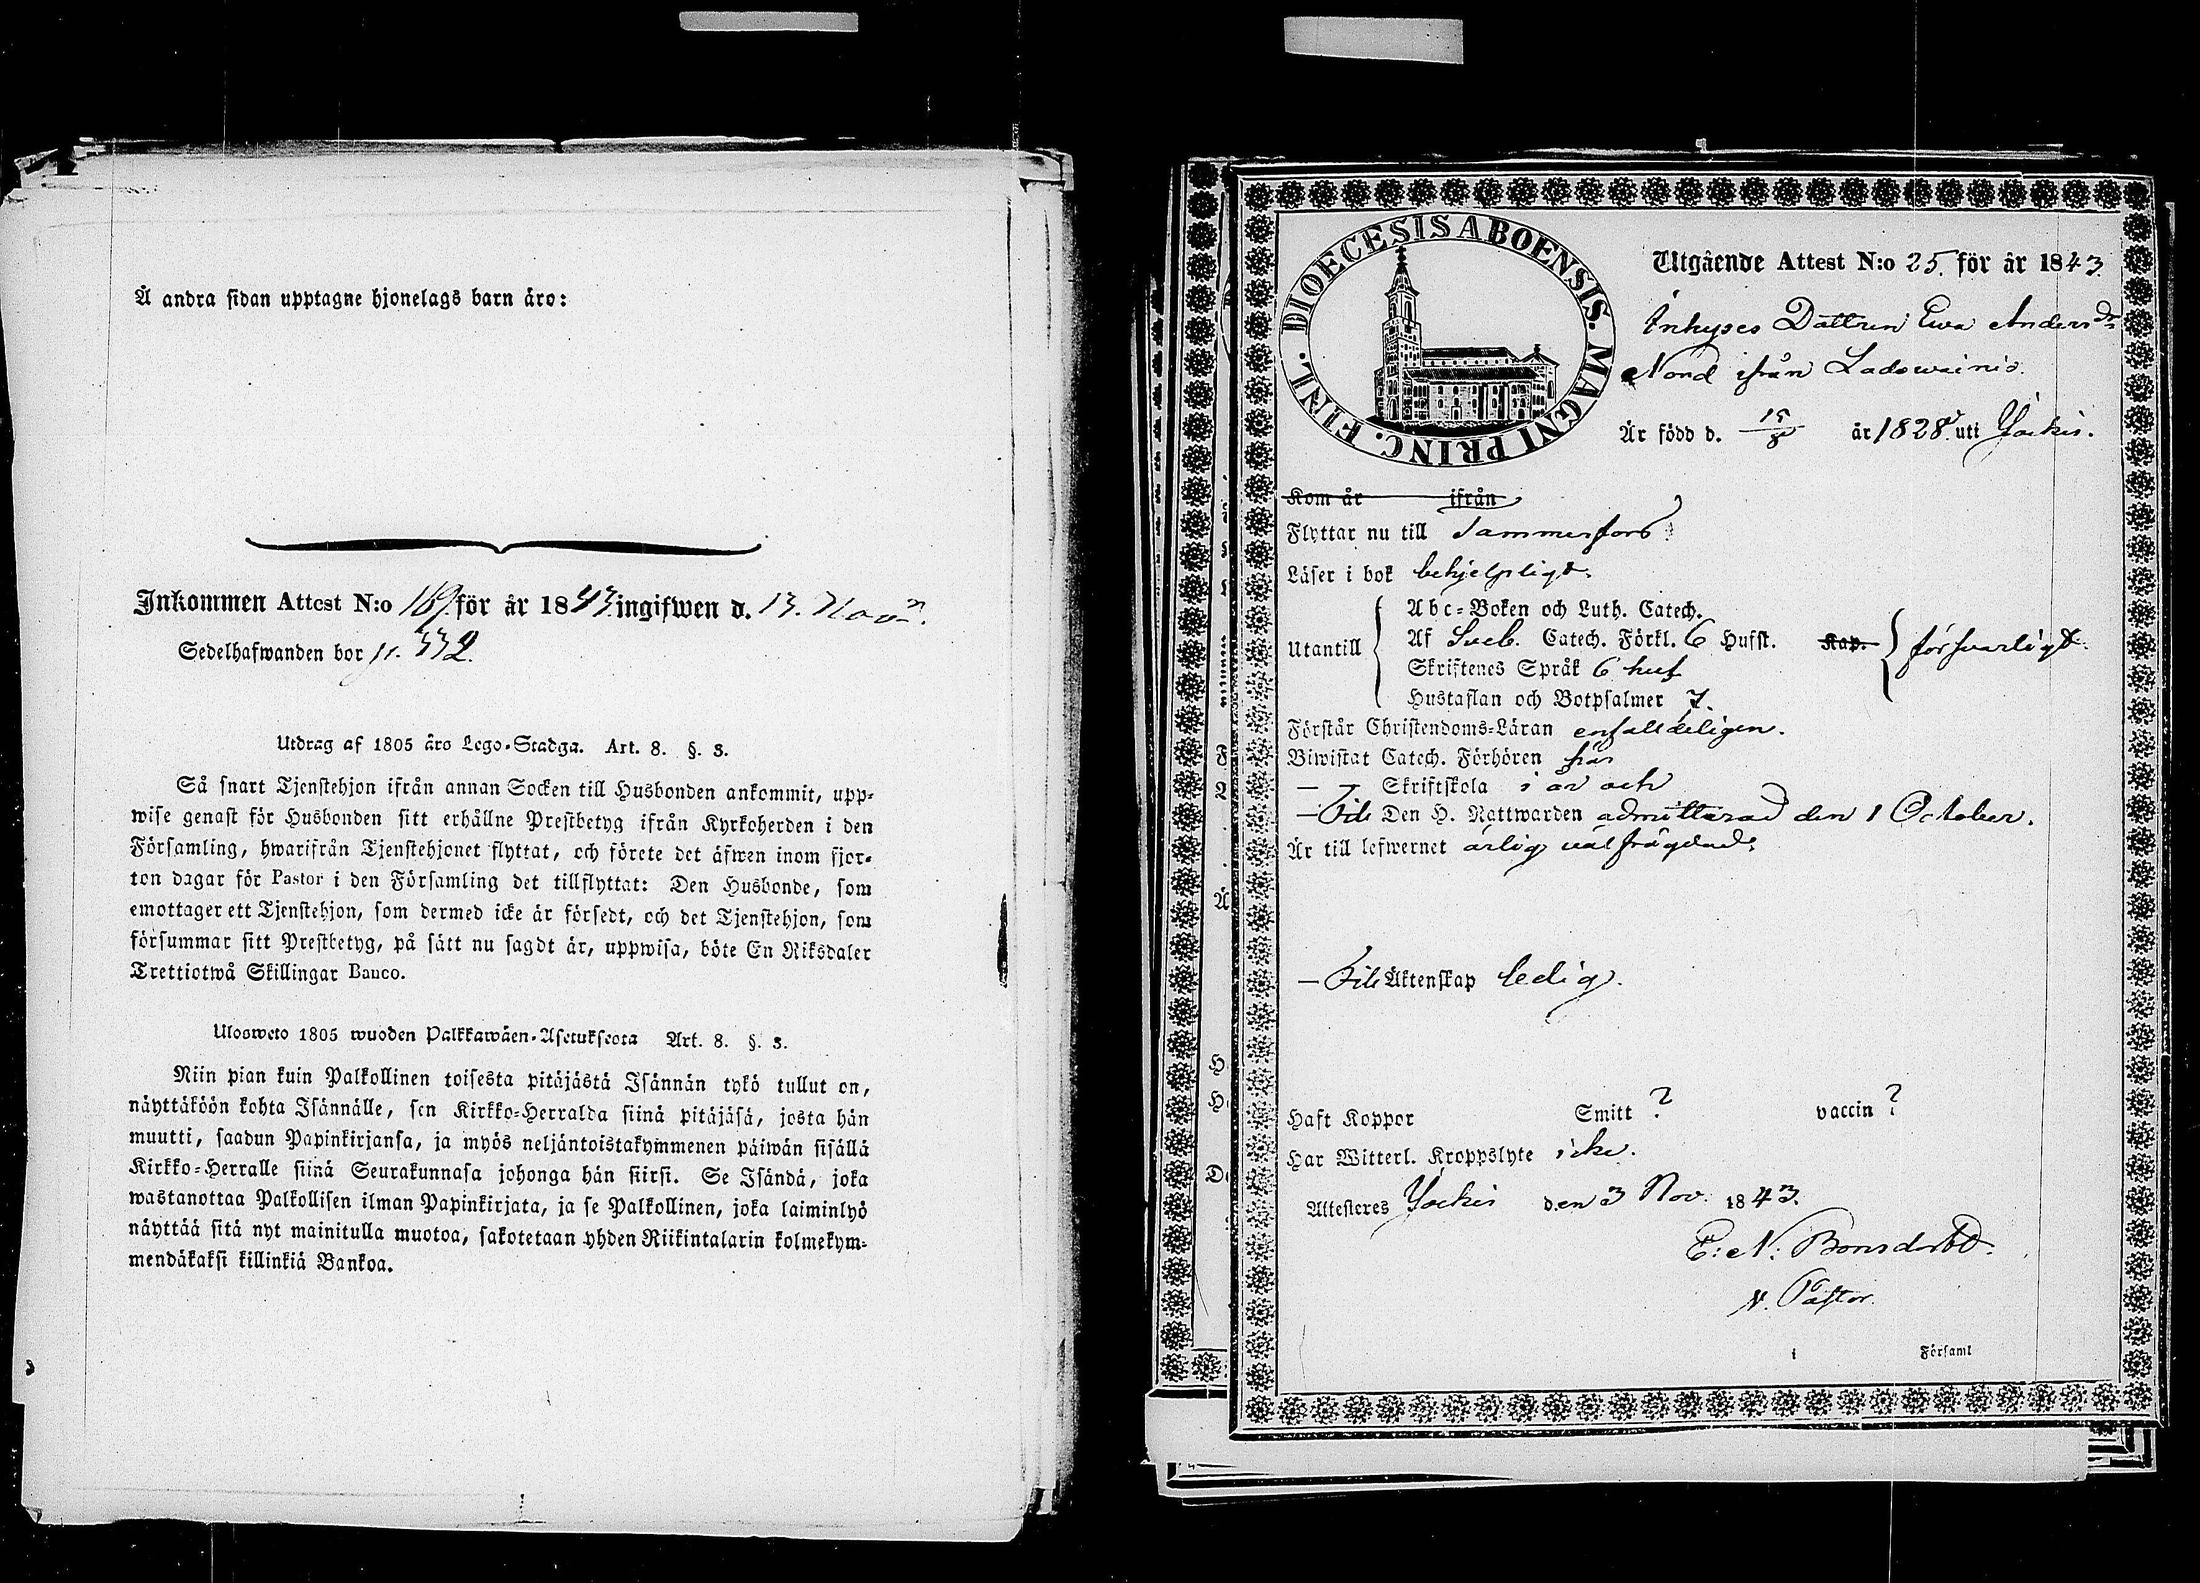 Å andra sidan upptagne hjonelags barn äro:
Inkommen Attest N:o 169 för år 1843 ingifwen d. 13. Nov.
Sedelhafwanden bor 332.
Utdrag af 1805 års Lego-Stadga. Art. 8. §. 3.
Så snart Tjenstehjon ifrån annan Socken till Husbonden ankommit, upp-
wise genast för Husbonden sitt erhållne Prestbetyg ifrån Kyrkoherden i den
Församling, hwarifrån Tjenstehjonet flyttat, och förete det äfwen inom fjor-
ton dagar för Pastor i den Församling det tillflyttat: Den Husbonde, som
emottager ett Tjenstehjon, som dermed icke är försedt, och det Tjenstehjon, som
försummar sitt Prestbetyg, på sätt nu sagdt är, uppwisa, böte En Riksdaler
Trettiotwå Skillingar Banco.
Ulosweto 1805 wuoden Palkkawäen-Asetuksesta Art. 8. §. 3.
Niin pian kuin Palkollinen toisesta pitäjästä Isännän tykö tullut on,
näyttäköön kohta Isännälle, sen Kirkko-Herralda siinä pitäjäsä, josta hän
muutti, saadun Papinkirjansa, ja myös neljäntoistakymmenen päiwän sisällä
Kirkko-Herralle siinä Seurakunnasa johonga hän siirsi. Se Isändä, joka
wastanottaa Palkollisen ilman Papinkirjata, ja se Palkollinen, joka laiminlyö
näyttää sitä nyt mainitulla muotoa, sakotetaan yhden Riikintalarin kolmekym-
mendäkaksi killinkiä Bankoa.
DIOECESIS ABOENSIS. MAGNI PRINC. FINL.
Utgående Attest N:o 25. för år 1843.
Inhyses Dottren Ewa Andersdr
Nord ifrån Ladowainio.
Är född d. 15/8 år 1828. uti Jockis.
Kom år ifrån
Flyttar nu till Tammerfors
Läser i bok behjelpligt.
Utantill
Abc-Boken och Luth. Catech.
Af Sveb. Catech. Förkl. 6 Hufst. Kap. försvarligt.
Skriftenes Språk 6 huf
Hustaflan och Botpsalmer 7.
Förstår Christendoms-Läran enfalldeligen.
Biwistat Catech. Förhören
— — Skriftskola i år och
— Till Den H. Nattwarden admitterad den 1 October.
Är till lefwernet ärlig välfrägdad.
— Till Äktenskap ledig.
Haft Koppor Smitt ? vaccin ?
Har Witterl. Kroppslyte icke.
Attesteres Jockis den 3 Nov. 1843.
E: N: Bonsdorff.
V. Pastor.
i Församl